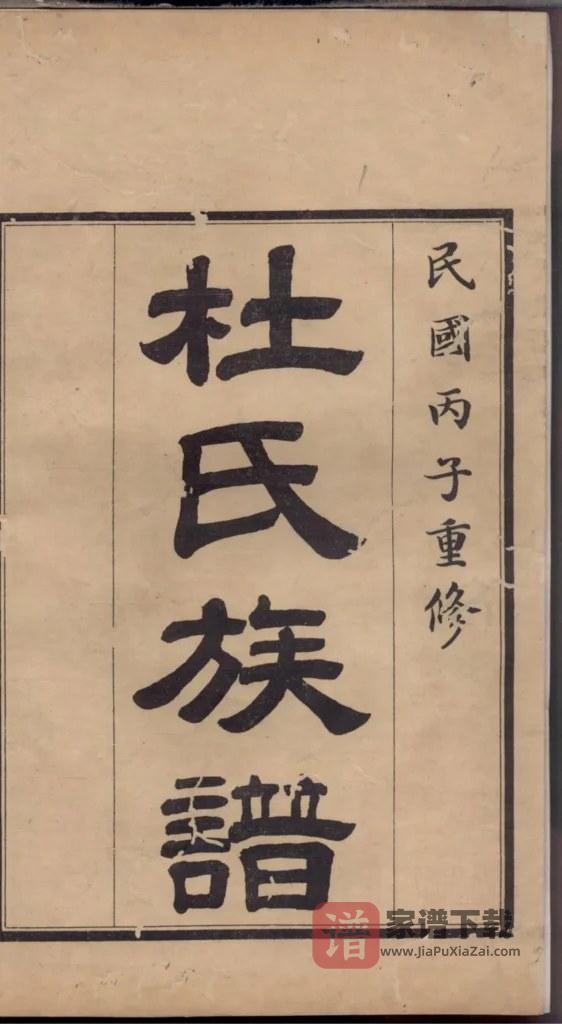 民國丙子重修
杜氏族譜
谱 家谱下载
www.JiaPuXiaZai.com